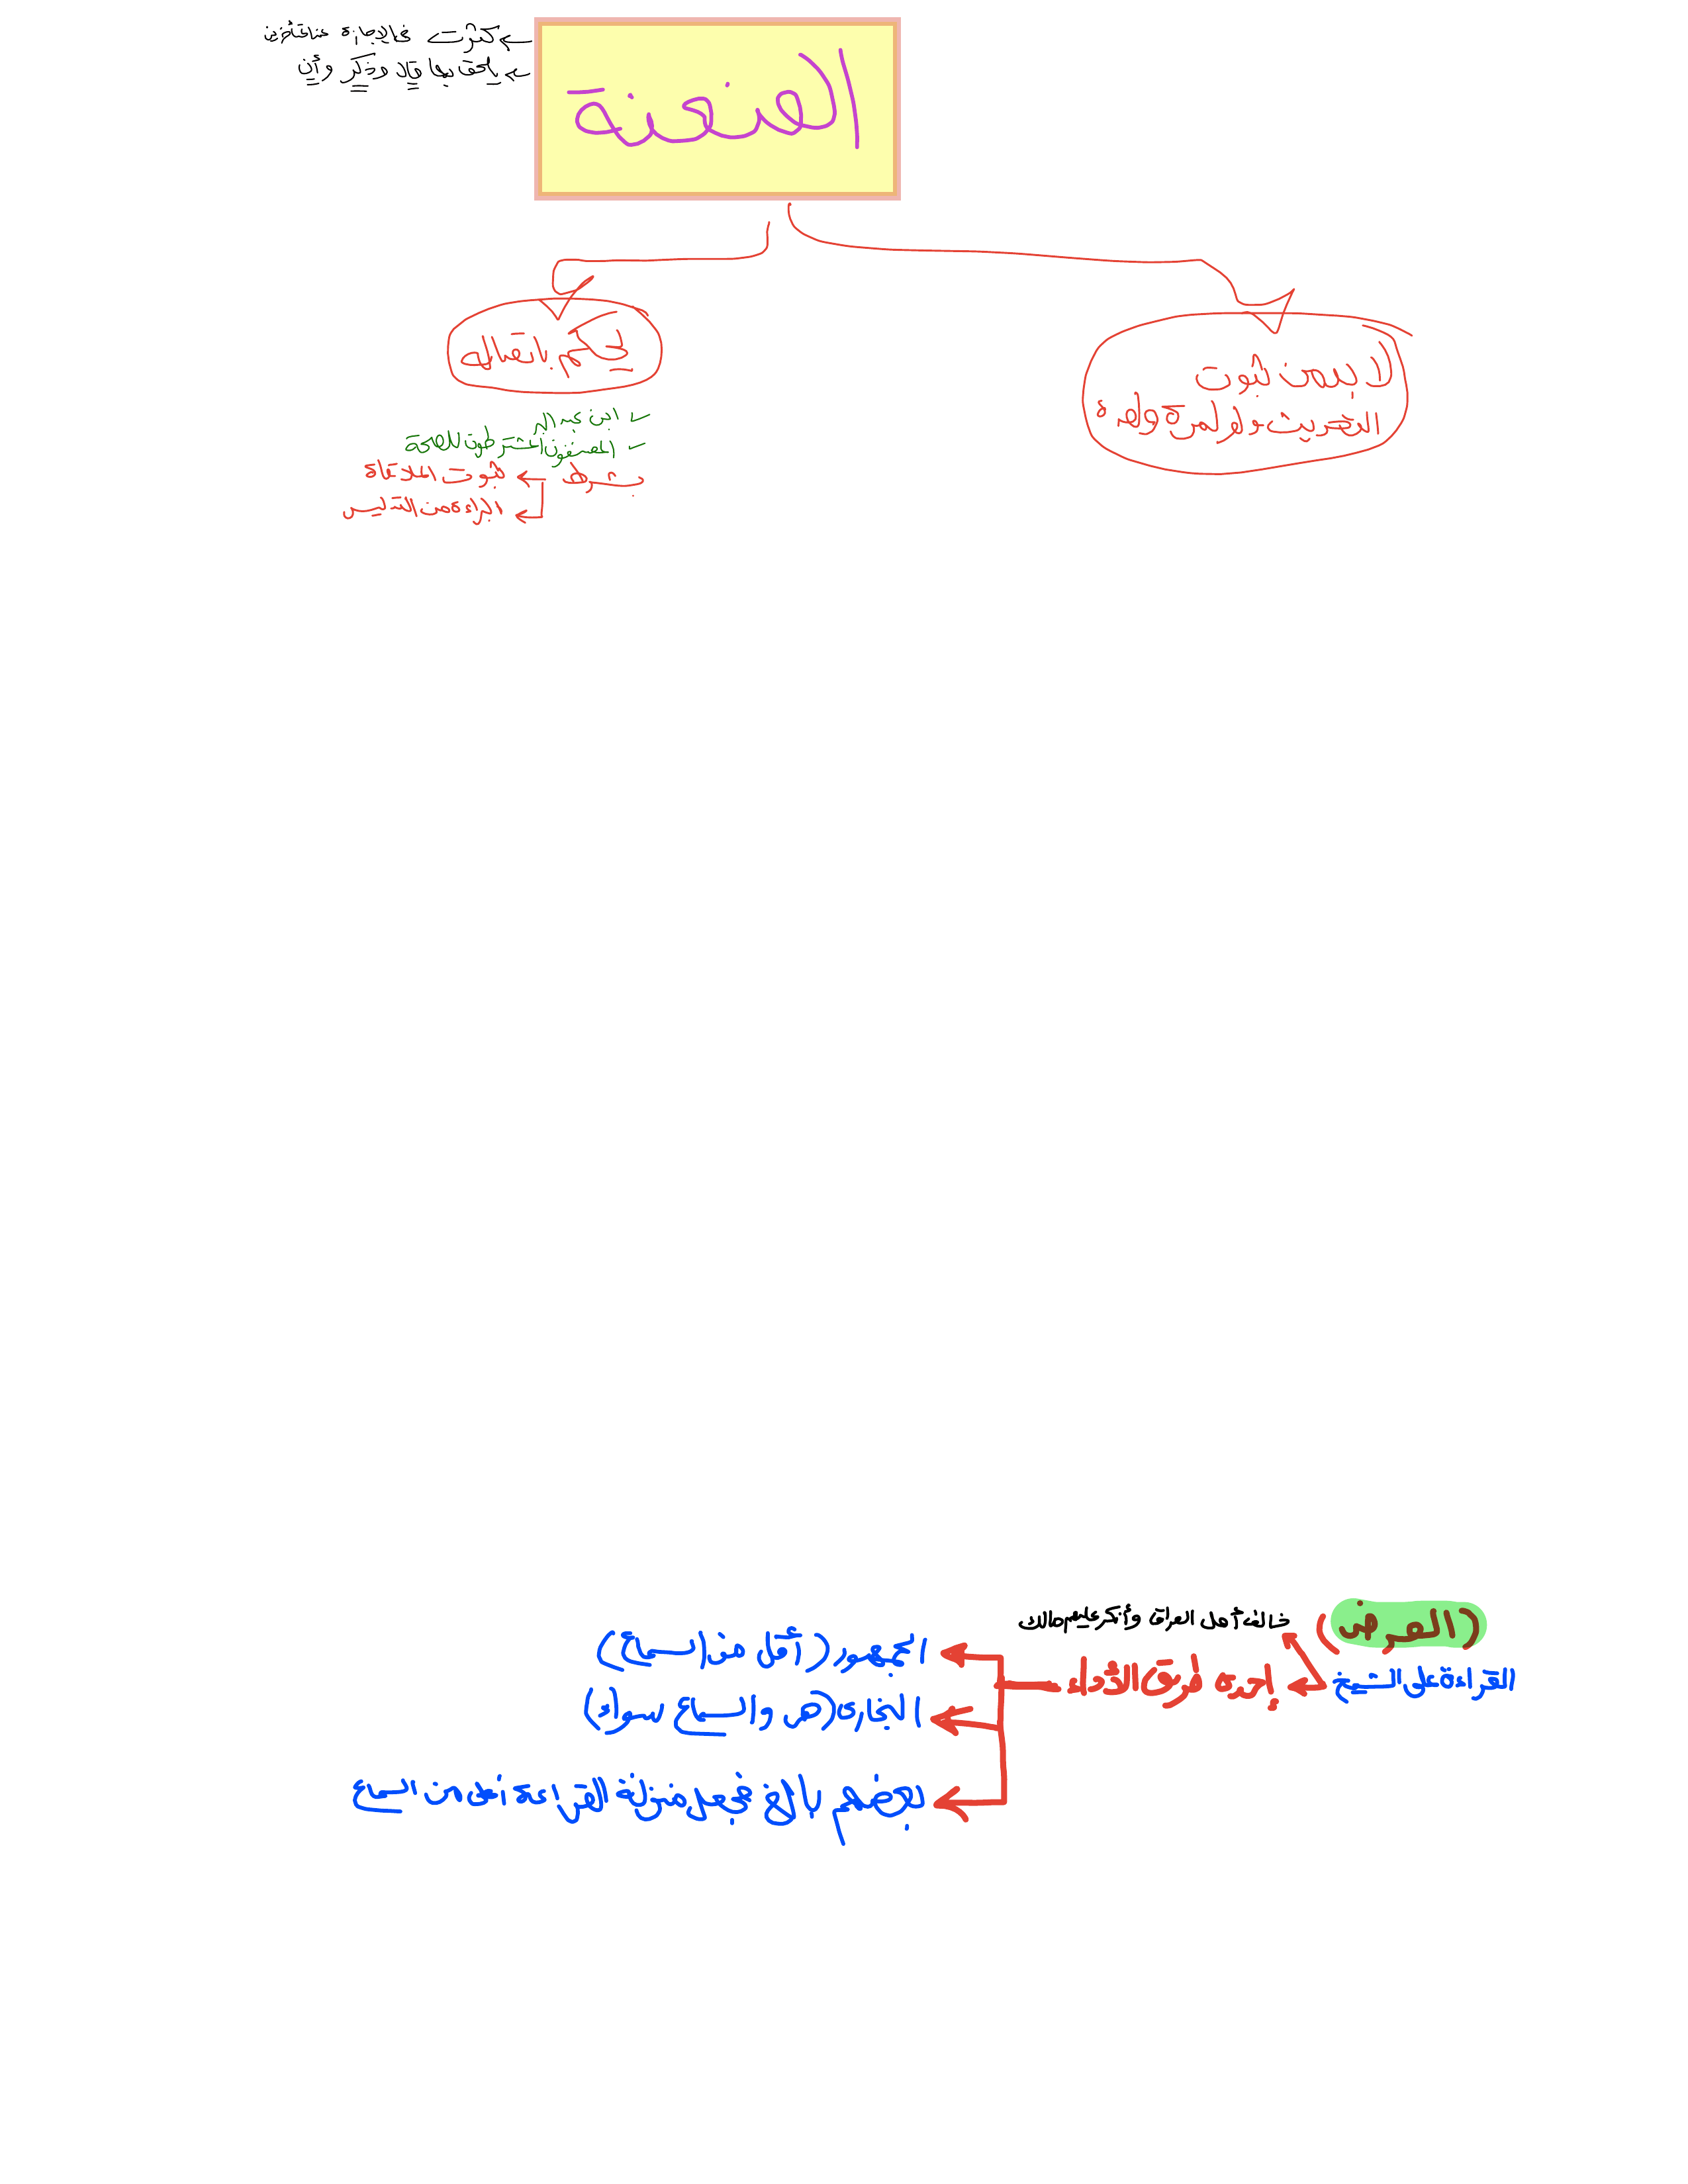 العنعنة
← كثرت في الإجازة عند المتأخرين
← يلحق بها قال وذكر وأن
لا بد من ثبوت
التحديث ولو لمرة واحدة
يحكم باتصاله
- ابن عبد البر
- المصنفون المشترطون للصحة
بشرط ← ثبوت الملاقاة
← البراءة من التدليس
(العرض)
خالف أهل العراق وأنكر عليهم مالك
القراءة على الشيخ ← إحدى طرق الأداء
← الجمهور (أقل من السماع)
← البخاري (هي والسماع سواء)
← بعضهم بالغ فجعل منزلة القراءة أعلى من السماع